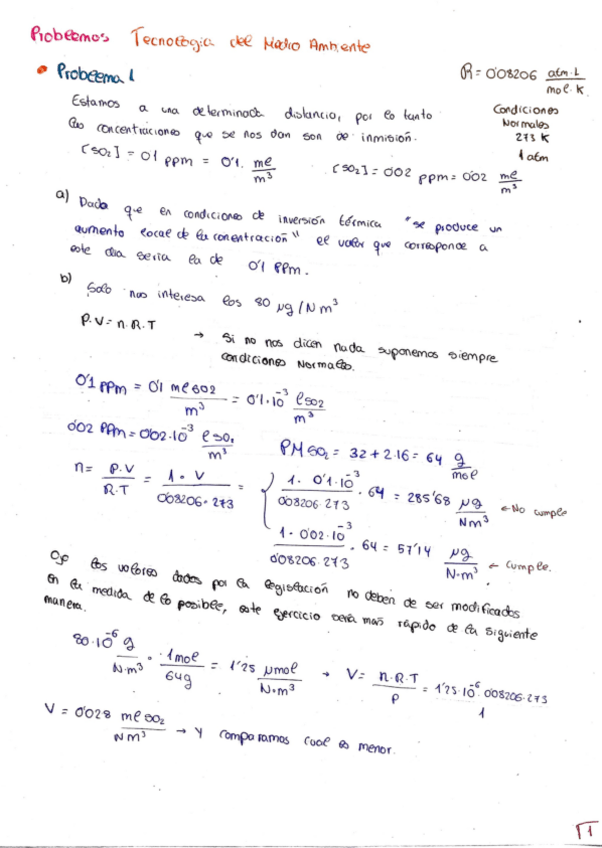 Problemas Tecnología del Medio Ambiente
• Problema 1
R = 0'08206 atm·L / mol·K
Condiciones
Normales
273 K
1 atm
Estamos a una determinada distancia, por lo tanto
las concentraciones que se nos dan son de inmisión.
[SO₂] = 0'1 ppm = 0'1 ml/m³
[SO₂] = 0'02 ppm = 0'02 ml/m³
a) Dado que en condiciones de inversión térmica "se produce un
aumento local de la conentración" el valor que corresponde a
este dia seria la de 0'1 ppm.
b) Solo nos interesa los 80 µg/Nm³
P.V = n.R.T
→ Si no nos dicen nada suponemos siempre
condiciones Normales.
0'1 ppm = 0'1 ml SO₂/m³ = 0'1·10⁻³ l SO₂/m³
0'02 ppm = 0'02·10⁻³ l SO₂/m³
PM SO₂ = 32 + 2·16 = 64 g/mol
n = P.V/R.T = 1·V/0'08206·273 = { 1·0'1·10⁻³/0'08206·273 · 64 = 285'68 µg/Nm³ ← No cumple
1·0'02·10⁻³/0'08206·273 · 64 = 57'14 µg/N·m³ ← Cumple.
Ojo los valores dados por la legislación no deben de ser modificados
en la medida de lo posible, este ejercicio será mas rápido de la siguiente
manera.
80·10⁻⁶ g/N·m³ · 1mol/64g = 1'25 µmol/N·m³ → V = n.R.T/P = 1'25·10⁻⁶·0'08206·273/1
V = 0'028 ml SO₂/Nm³ → Y comparamos cual es menor.
1